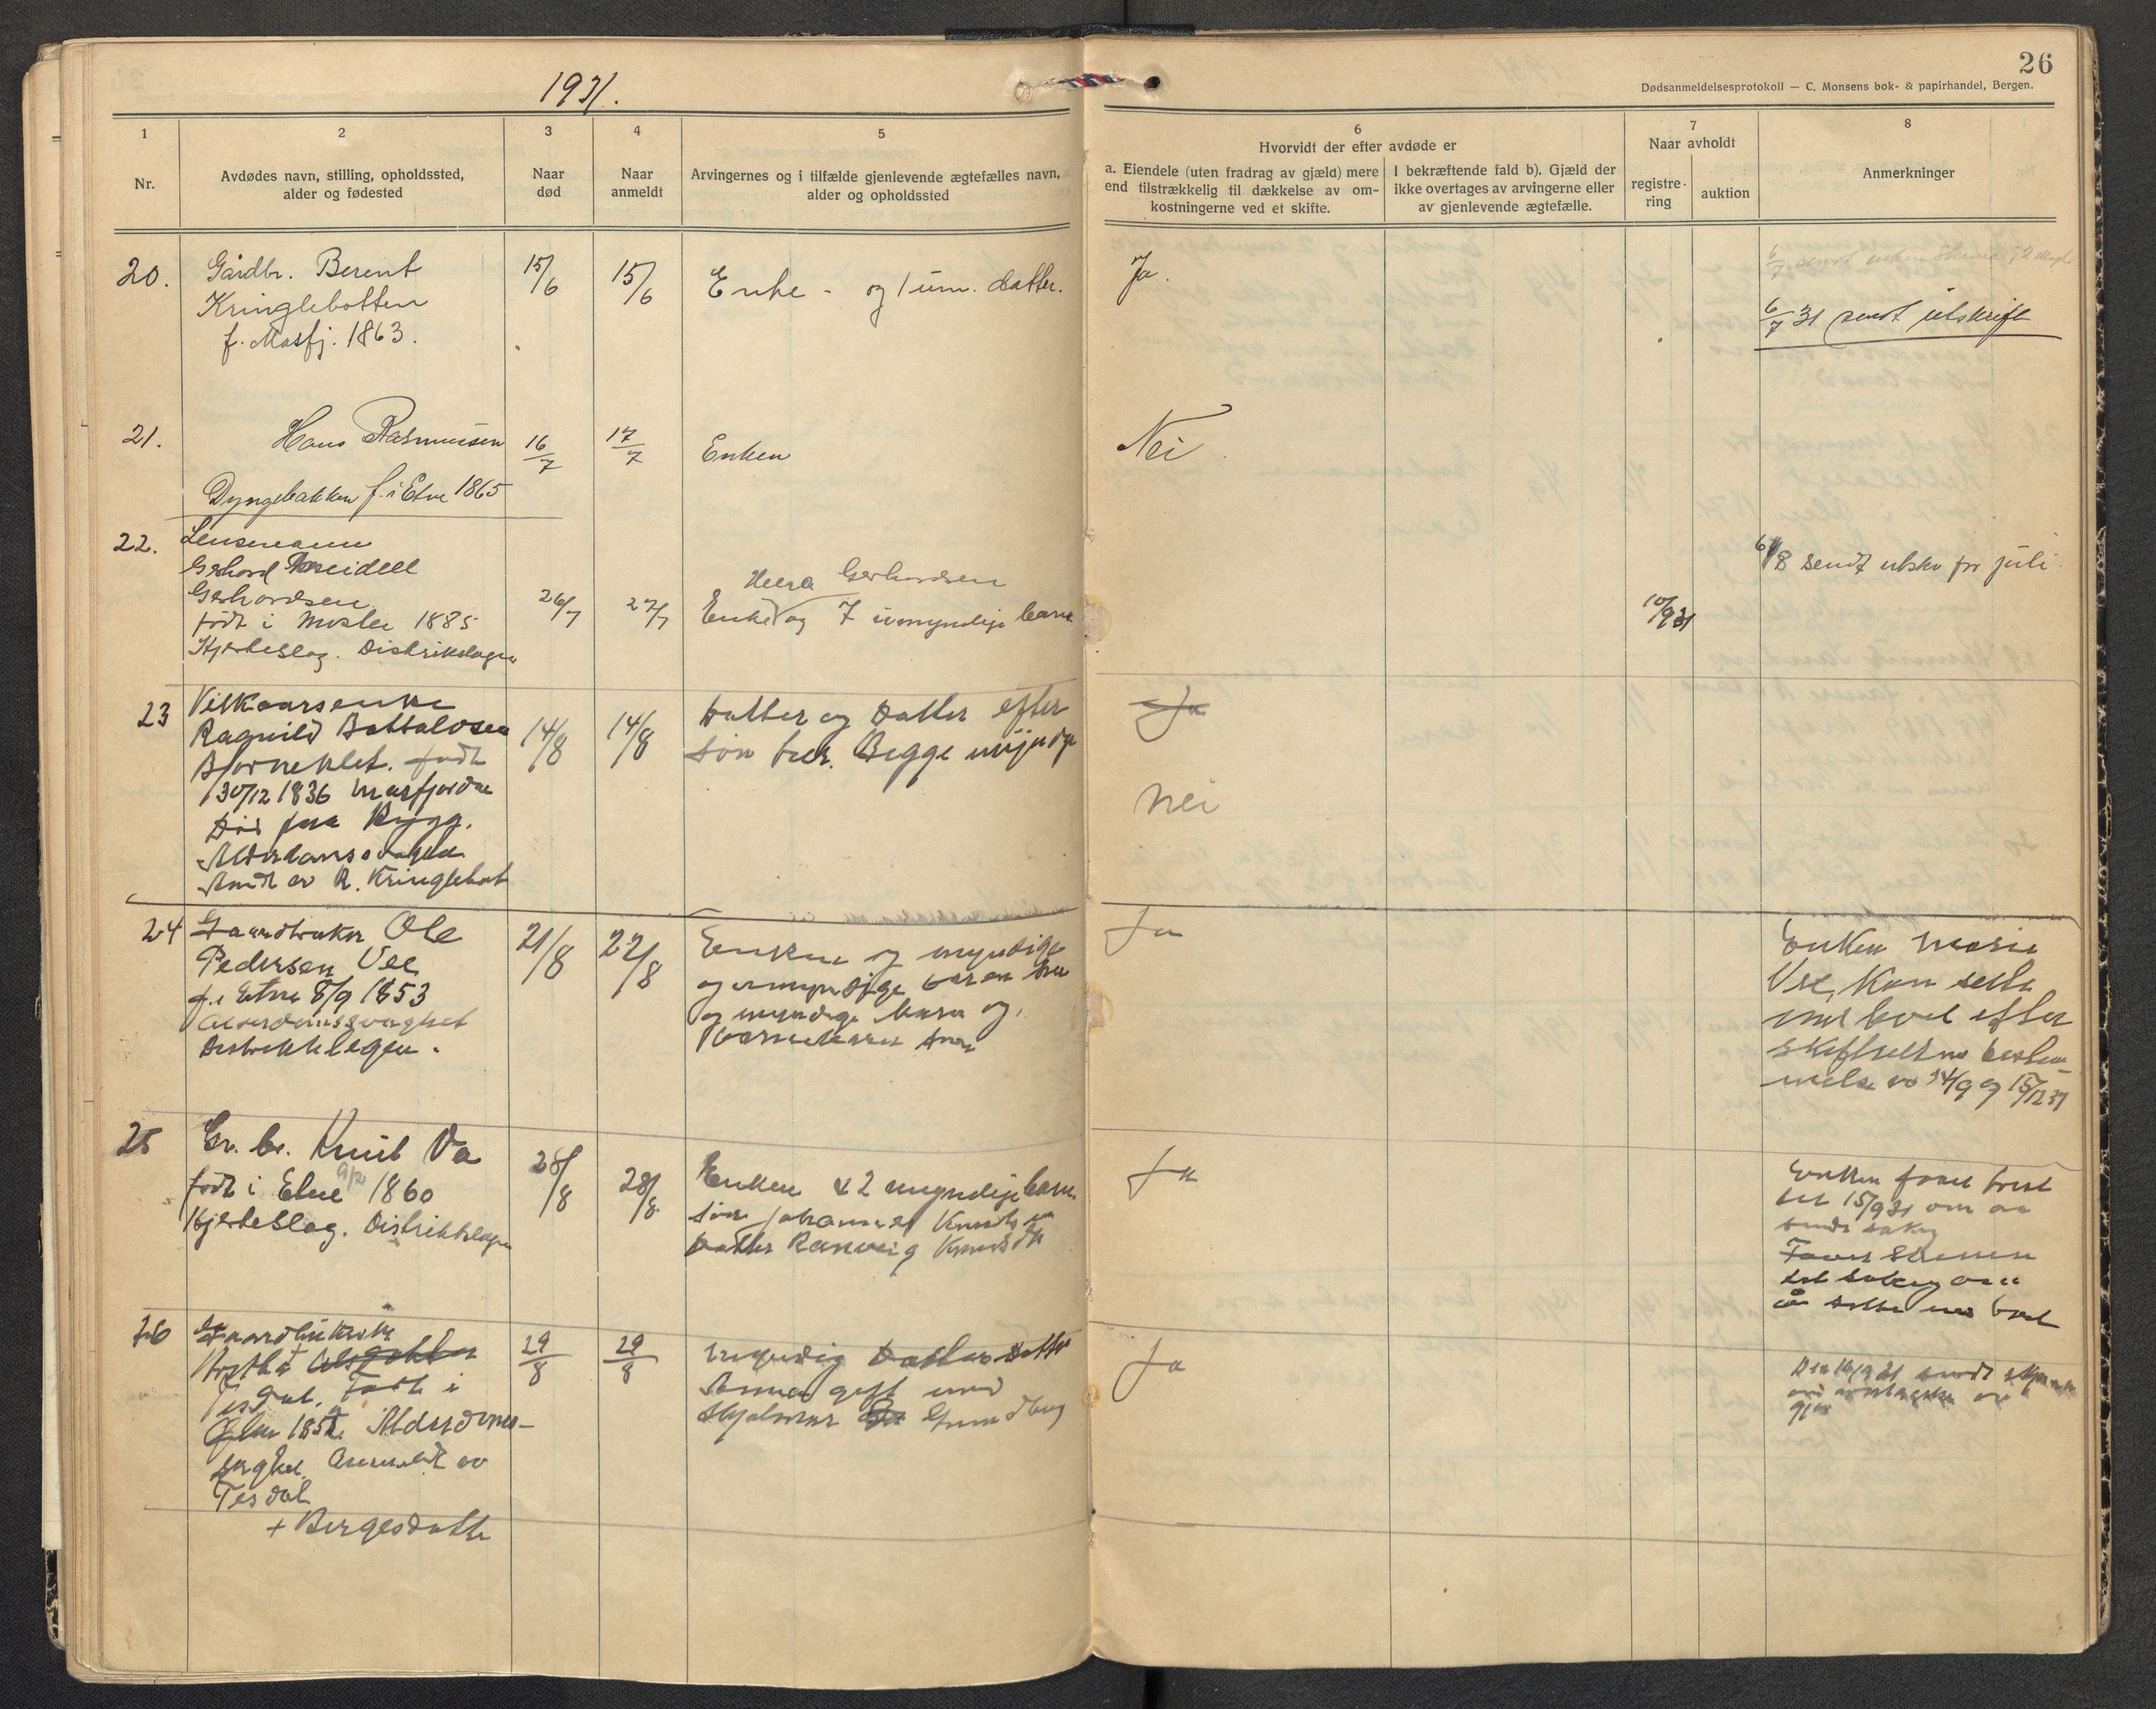 1931.
26
Dødsanmeldelsesprotokoll — C. Monsens bok- & papirhandel, Bergen.
1
Nr.
2
Avdødes navn, stilling, opholdssted,
alder og fødested
3
Naar
død
4
Naar
anmeldt
5
Arvingernes og i tilfælde gjenlevende ægtefælles navn,
alder og opholdssted
6
Hvorvidt der efter avdøde er
a. Eiendele (uten fradrag av gjæld) mere
end tilstrækkelig til dækkelse av om-
kostningerne ved et skifte.
I bekræftende fald b). Gjæld der
ikke overtages av arvingerne eller
av gjenlevende ægtefælle.
7
Naar avholdt
registre-
ring
auktion
8
Anmerkninger
20.
Gårdbr. Berent
Kringlebotten
f. Masfj. 1863.
15/6
15/6
Enke - og 1 um. datter.
Ja.
6/7 31 sendt utskrift
21.
Hans Rasmussen
Dyngebakken f. i Etne 1865
16/7
17/7
Enken
Nei
22.
Lensmann
Gerhard Meidell
Gerhardsen
født i Mosby 1885
Hjerteslag. Distriktslegen
26/7
27/7
Gerhardsen
Enke og 7 umyndige barn
10/9 31
6/8 sendt utskr for juli
23
Vilkaarsenke
Ragnild Battalvsen
Bjørneklet. født
30/12 1836 Masfjorden
Død paa Rygg.
Anm av R. Kringlebot
14/8
14/8
Datter og Datter efter
søn her. Begge myndge
Ja
Nei
24
Gaardbruker Ole
Pedersen Vee
f. i Etne 8/9 1853
Alderdomssvaghet
Distriktslegen.
21/8
22/8
Enken og myndige
og umyndige barn
og myndige barn og
barnebarn
Ja
Enken Marie
Vee, Kan sitte
med boet efter
skifterettens bestem
melse av 14/9 og 15/12 31
25
Gr. br. Knut Va
født i Etne 9/2 1860
Hjerteslag. Distriktslegen
28/8
28/8
Enken & 2 myndige barn.
søn Johannes Knudsen
Datter Ranveig Knudsdtr
Ja
Enken faaet frist
til 15/9 31 om aa
sende søkn
til søknad om
å sitte med boet
26
Gaardbrukerske
Tesdal. Født i
Ølen 1852. Alderdoms-
svaghet. Anmeldt av
Tesdal
+ Bergesdatter
29/8
29/8
myndig Datter Datter
Anna gift med
Hjalmar Grundberg
Ja
Den 16/9 31 sendt skjema